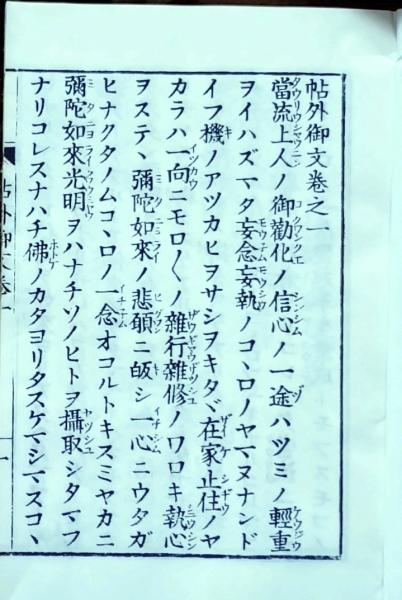 帖外御文卷之一
當流上人ノ御勸化ノ信心ノ一途ハツミノ輕重
ヲイハズマタ妄念妄執ノコヽロノヤマヌナンド
イフ機ノアツカヒヲサシヲキタヾ在家止住ノヤ
カラハ一向ニモロ〱ノ雜行雜修ノワロキ執心
ヲステヽ彌陀如來ノ悲願ニ皈シ一心ニウタガ
ヒナクタノムコヽロノ一念オコルトキスミヤカニ
彌陀如來光明ヲハナチソノヒトヲ攝取シタマフ
ナリコレスナハチ佛ノカタヨリタスケマシマスコヽ
帖外御文卷一
一